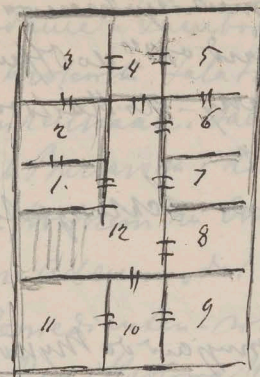 3 4 5
2 6
1. 7
12 8
11 10 9